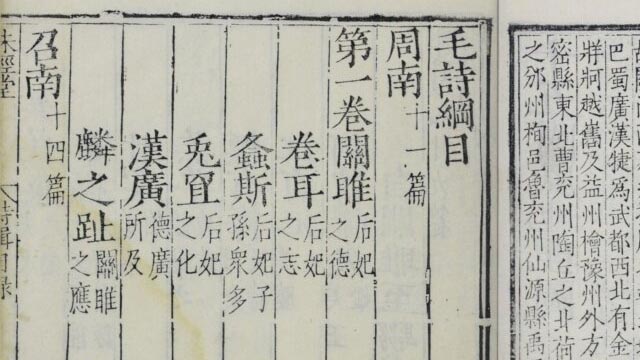 巴蜀廣漢犍為武都西北有金
牂牁越嶲及益州檜豫州外方
密縣東北曹兖州陶丘之北荷
之邠州栒邑魯兖州仙源縣禹
毛詩綱目
周南十一篇
第一卷關雎后妃之德
卷耳后妃之志
螽斯后妃子孫衆多
兎罝后妃之化
漢廣德廣所及
麟之趾關雎之應
召南十四篇
味經堂 詩輯目録